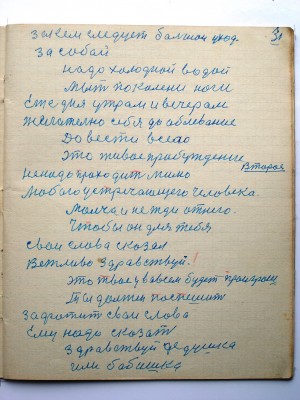 31
за кем следует большой уход.
за собой
надо холодной водой
Мыт по колени ноги
Еже дня утрам и вечерам
желательно себя до обливание
Довести всего
это живае прабуждение
Вторая
ненадо проходит мимо
любого устречающего человека
Молча и не жди от него.
Чтобы он для тебя
свои слова сказал
Вежливо здравствуй!
это твае у вавсем будет проигрош
Ты должен поспешит
задротит свои слова
Ему надо сказат
здравствуй дедушка
или бабушка